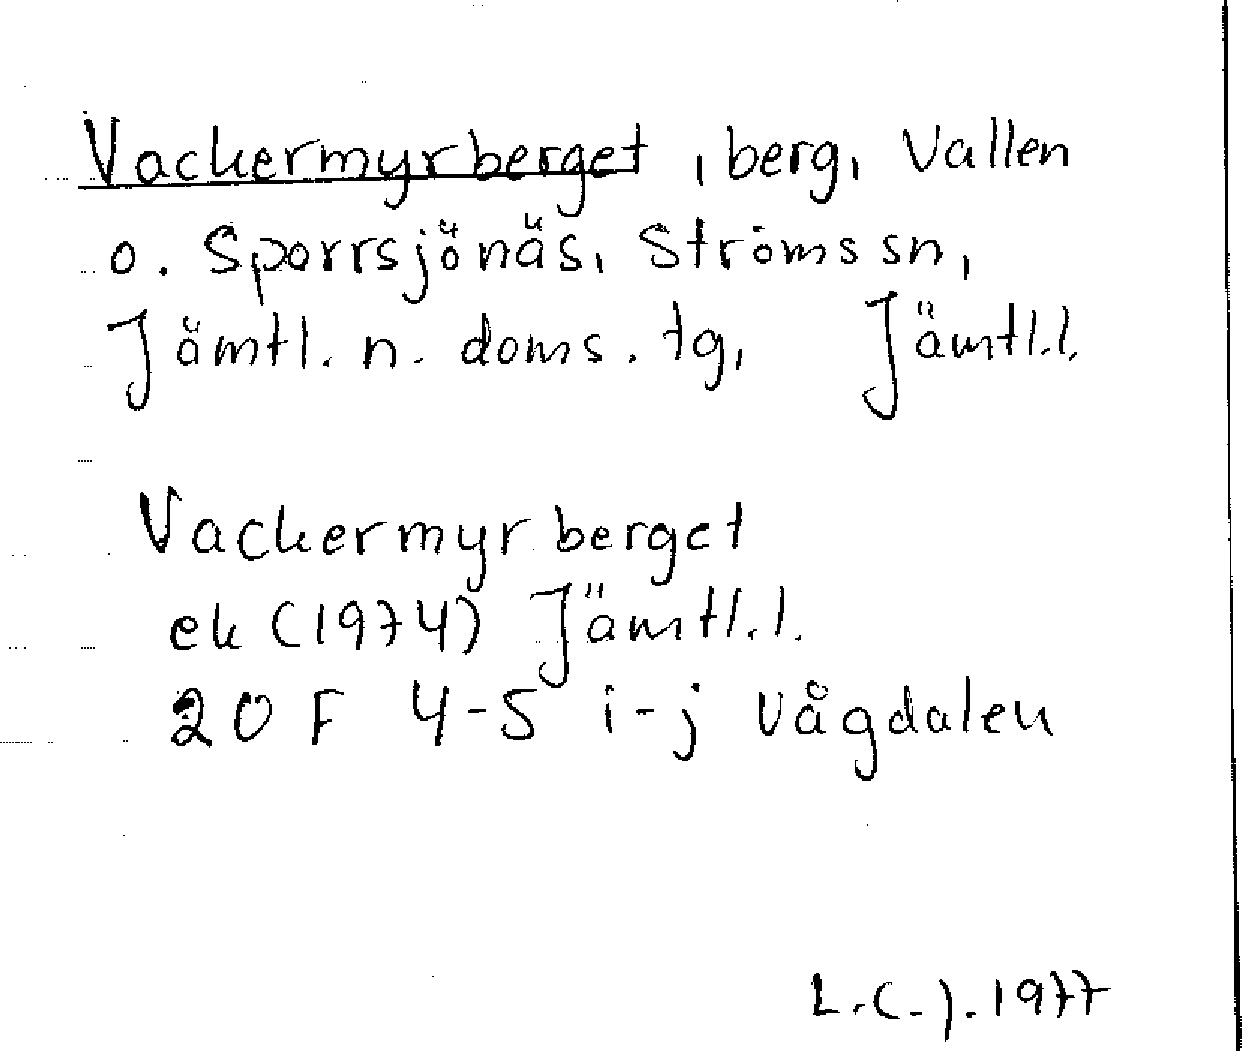 Vackermyrberget, berg, Vallen
o. Sporrsjönäs, Ströms sn,
Jämtl. n. doms. tg, Jämtl.l.
Vackermyrberget
ek (1974) Jämtl.l.
20 F 4-5 i-j Vågdalen
L.C.J. 1977